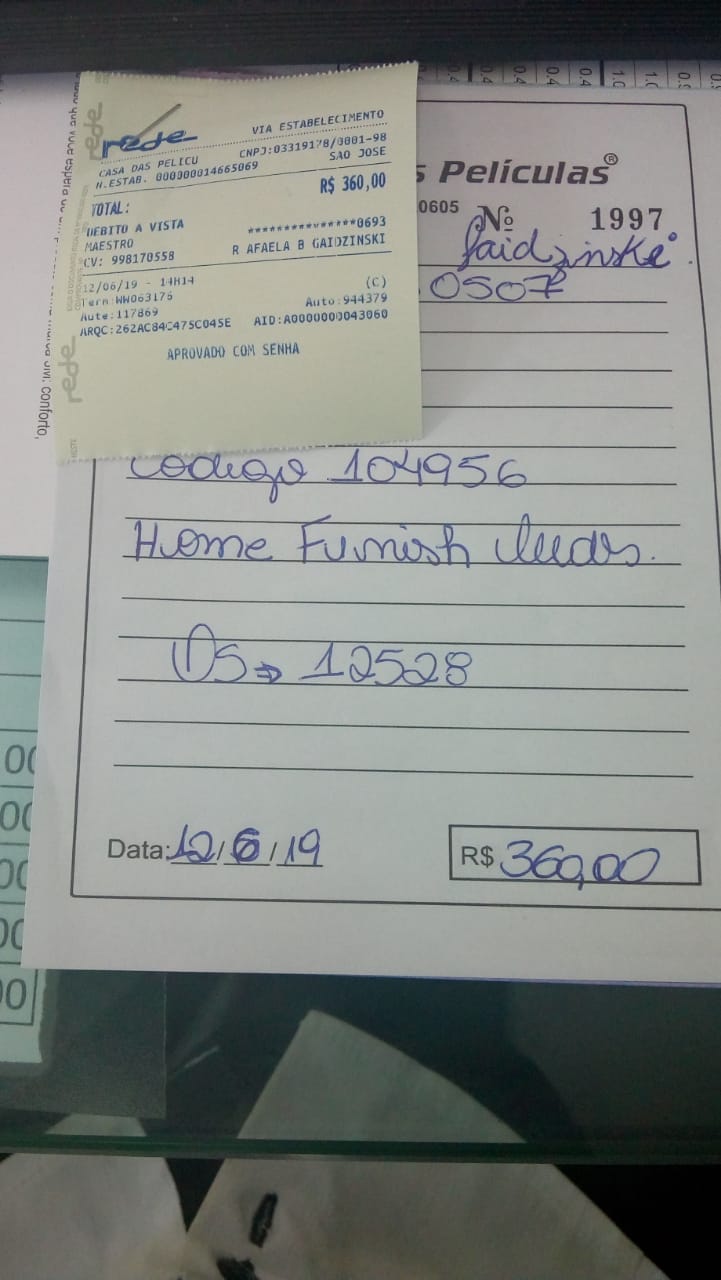 rede
VIA ESTABELECIMENTO
CASA DAS PELICU CNPJ:03319178/0001-98
N.ESTAB. 000000014665069 SAO JOSE
TOTAL: R$ 360,00
DEBITO A VISTA
MAESTRO ***************0693
CV: 998170558 R AFAELA B GAIDZINSKI
12/06/19 - 14H14 (C)
Term:WW063176 Auto:944379
Aute:117869
ARQC:262AC84C475C045E AID:A0000000043060
APROVADO COM SENHA
rede
rede
s Películas®
0605 Nº 1997
Gaidzinski
0507
Código 104956
Home Furnish
OS ⇒ 12528
Data: 12/6/19
R$ 360,00
conforto,